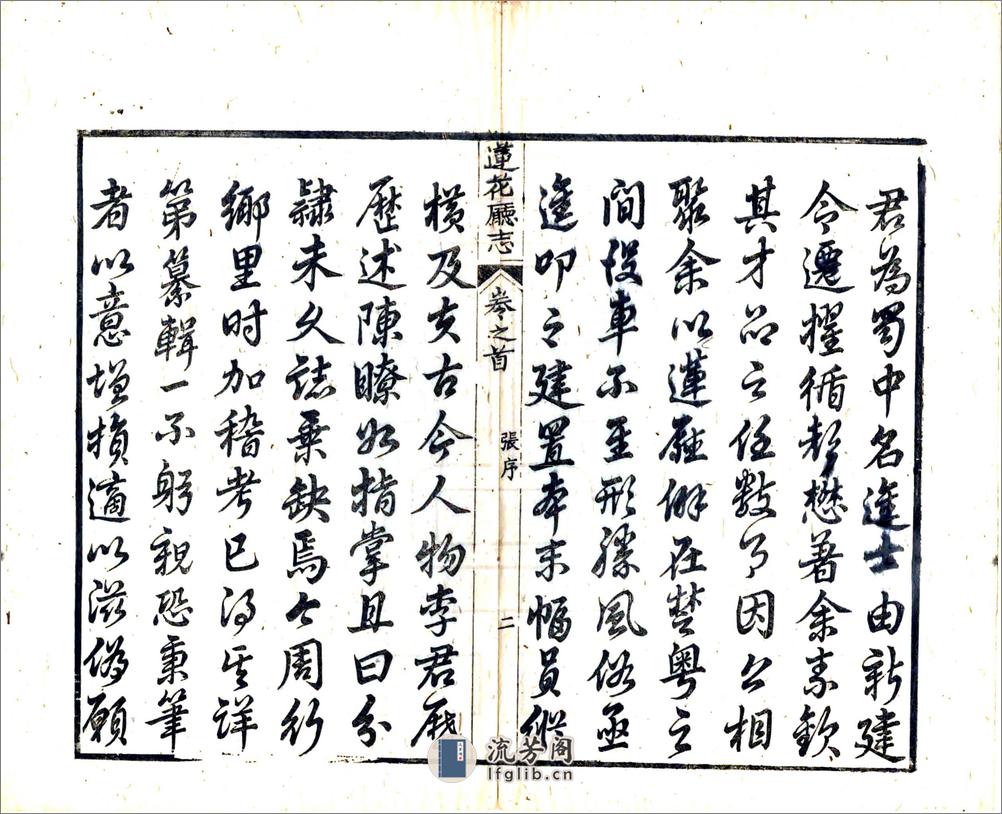 君為蜀中名進士由新建
令遷擢循懋著余素欽
其才品之任數月因公相
聚余以蓮廳僻在楚粵之
間役車不至形勝風俗亟
進叩之建置本末幅員縱
蓮花廳志 卷之首 張序 二
橫及夫古今人物李君歷
歷述陳瞭如指掌且曰分
隸未久誌乘缺焉公周行
鄉里时加稽考已得其詳
第纂輯一不躬親恐秉筆
者以意增損適以滋偽願
流芳阁
lfglib.cn